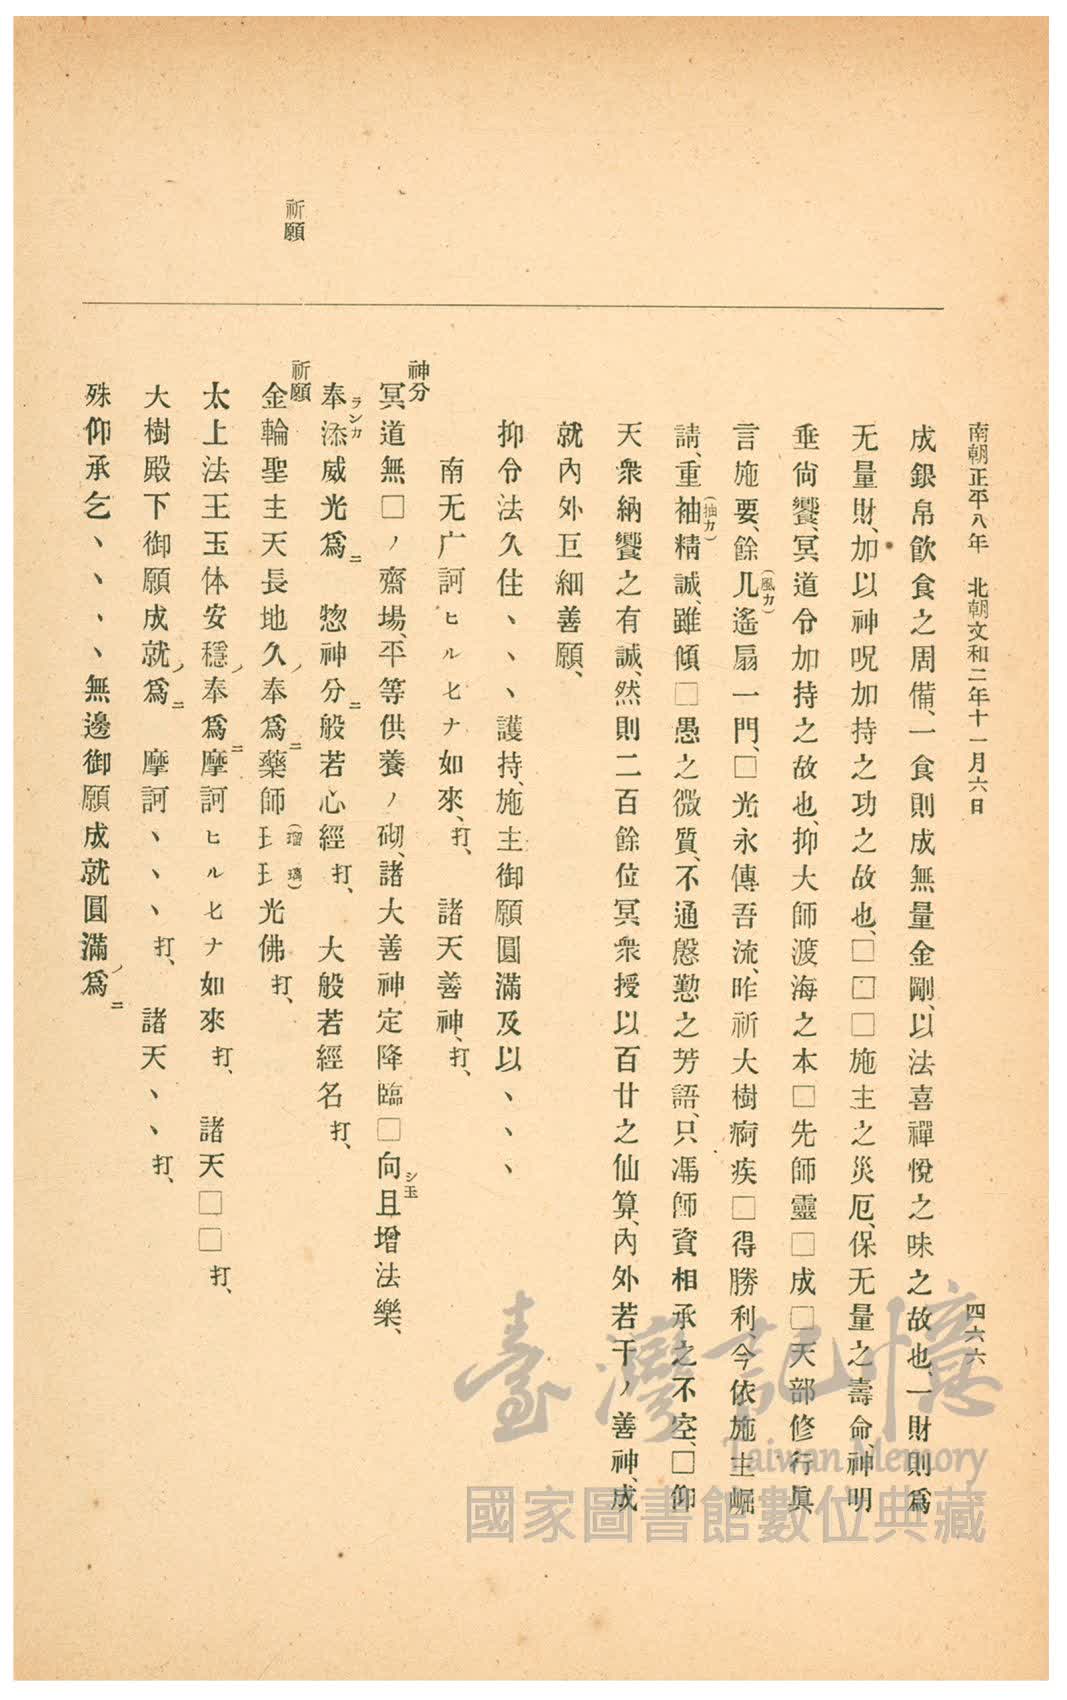 南朝正平八年　北朝文和二年十一月六日
四六六
成銀帛飮食之周備、一食則成無量金剛、以法喜禪悅之味之故也、一財則爲
无量財、加以神呪加持之功之故也、□□□施主之災厄、保无量之壽命、神明
垂尙饗、冥道令加持之故也、抑大師渡海之本□先師靈□成□天部修行眞
言施要、餘凡(風カ)遙扇一門、□光永傳吾流、昨祈大樹痾疾□得勝利、今依施主崛
請、重袖(抽カ)精誠、雖傾□愚之微質、不通慇懃之芳語、只馮師資相承之不空、□仰
天衆納饗之有誠、然則二百餘位冥衆授以百廿之仙算、內外若干ノ善神、成
就內外巨細善願、
抑令法久住、、、護持、施主御願圓滿及以、、、
南无广訶ヒル七ナ如來、打、　諸天善神、打、
神分
冥道無□ノ齋場、平等供養ノ砌、諸大善神定降臨□向シ玉且增法樂、
奉添ランカ威光爲ニ　惣神分ニ般若心經打、　大般若經名打、
祈願
祈願
金輪聖主天長地久ノ奉爲ニ藥師𤣩𤣩(瑠璃)光佛打、
太上法王玉体安穩ノ奉爲ニ摩訶ヒル七ナ如來打、　諸天□□打、
大樹殿下御願成就ノ爲ニ　摩訶、、、打、　諸天、、打、
殊仰承乞、、、、無邊御願成就圓滿ノ爲ニ
臺灣記憶
Taiwan Memory
國家圖書館數位典藏